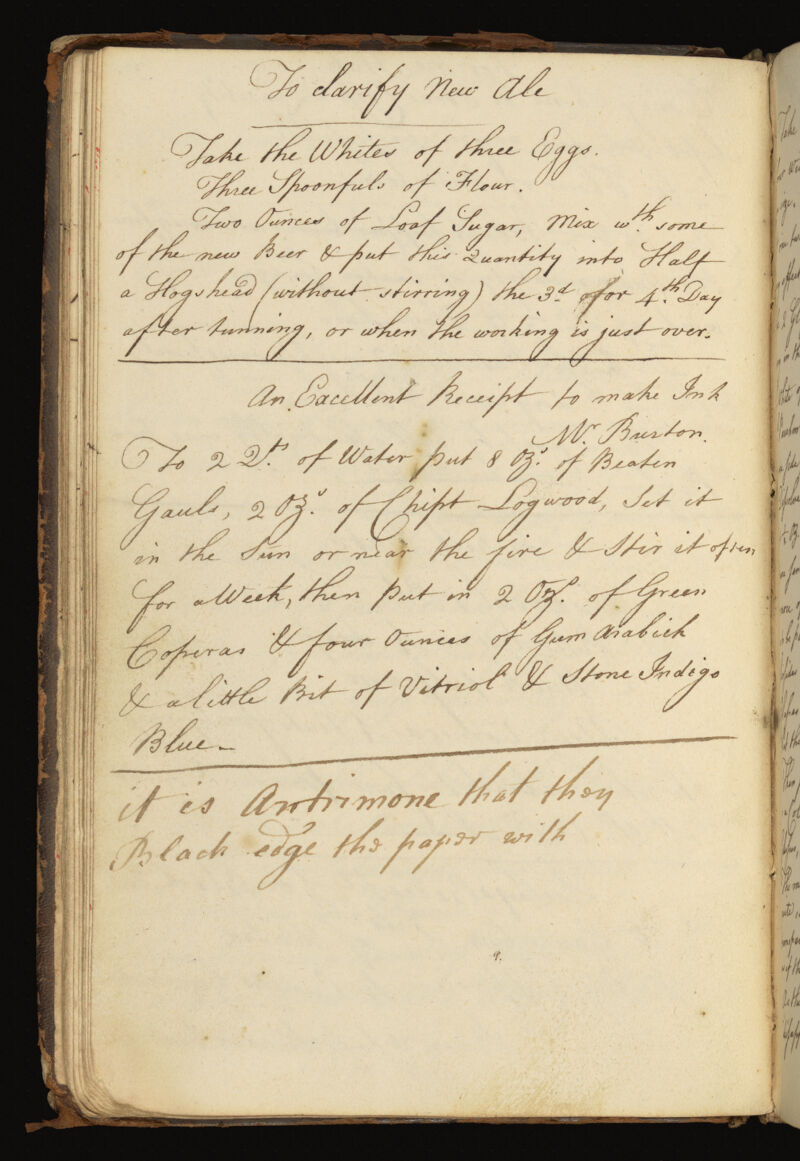 To clarify New Ale
Take the Whites of three Eggs.
Three Spoonfuls of Flour.
Two Ounces of Loaf Sugar, Mix wth. some
of the new Beer & put this Quantity into Half
a Hogshead (without stirring) the 3d or 4th. Day
after tunning, or when the working is just over.
An Excellent Receipt to make Ink
Mr. Burton.
To 2 Qts. of Water put 8 Ozs. of Beaten
Gauls, 2 Ozs. of Chipt Logwood, Set it
in the Sun or near the fire & Stir it often
for a Week, then put in 2 Ozs. of Green
Coperas & four Ounces of Gum Arabick
& a little Bit of Vitriol & Stone Indigo
Blue—
it is Antrimone that they
Black edge the paper with